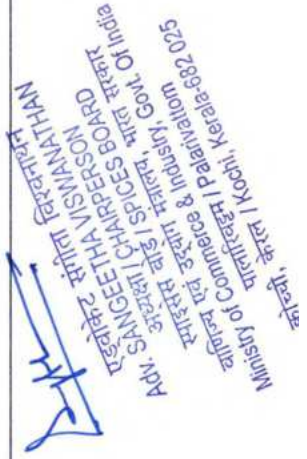 एडवोकेट संगीता विश्वनाथन
Adv. SANGEETHA VISWANATHAN
अध्यक्षा / CHAIRPERSON
स्पाइसस बोर्ड / SPICES BOARD
वाणिज्य एवं उद्योग मंत्रालय, भारत सरकार
Ministry of Commerce & Industry, Govt. Of India
पालारिवट्टम / Palarivattom
कोच्ची, केरल / Kochi, Kerala-682 025